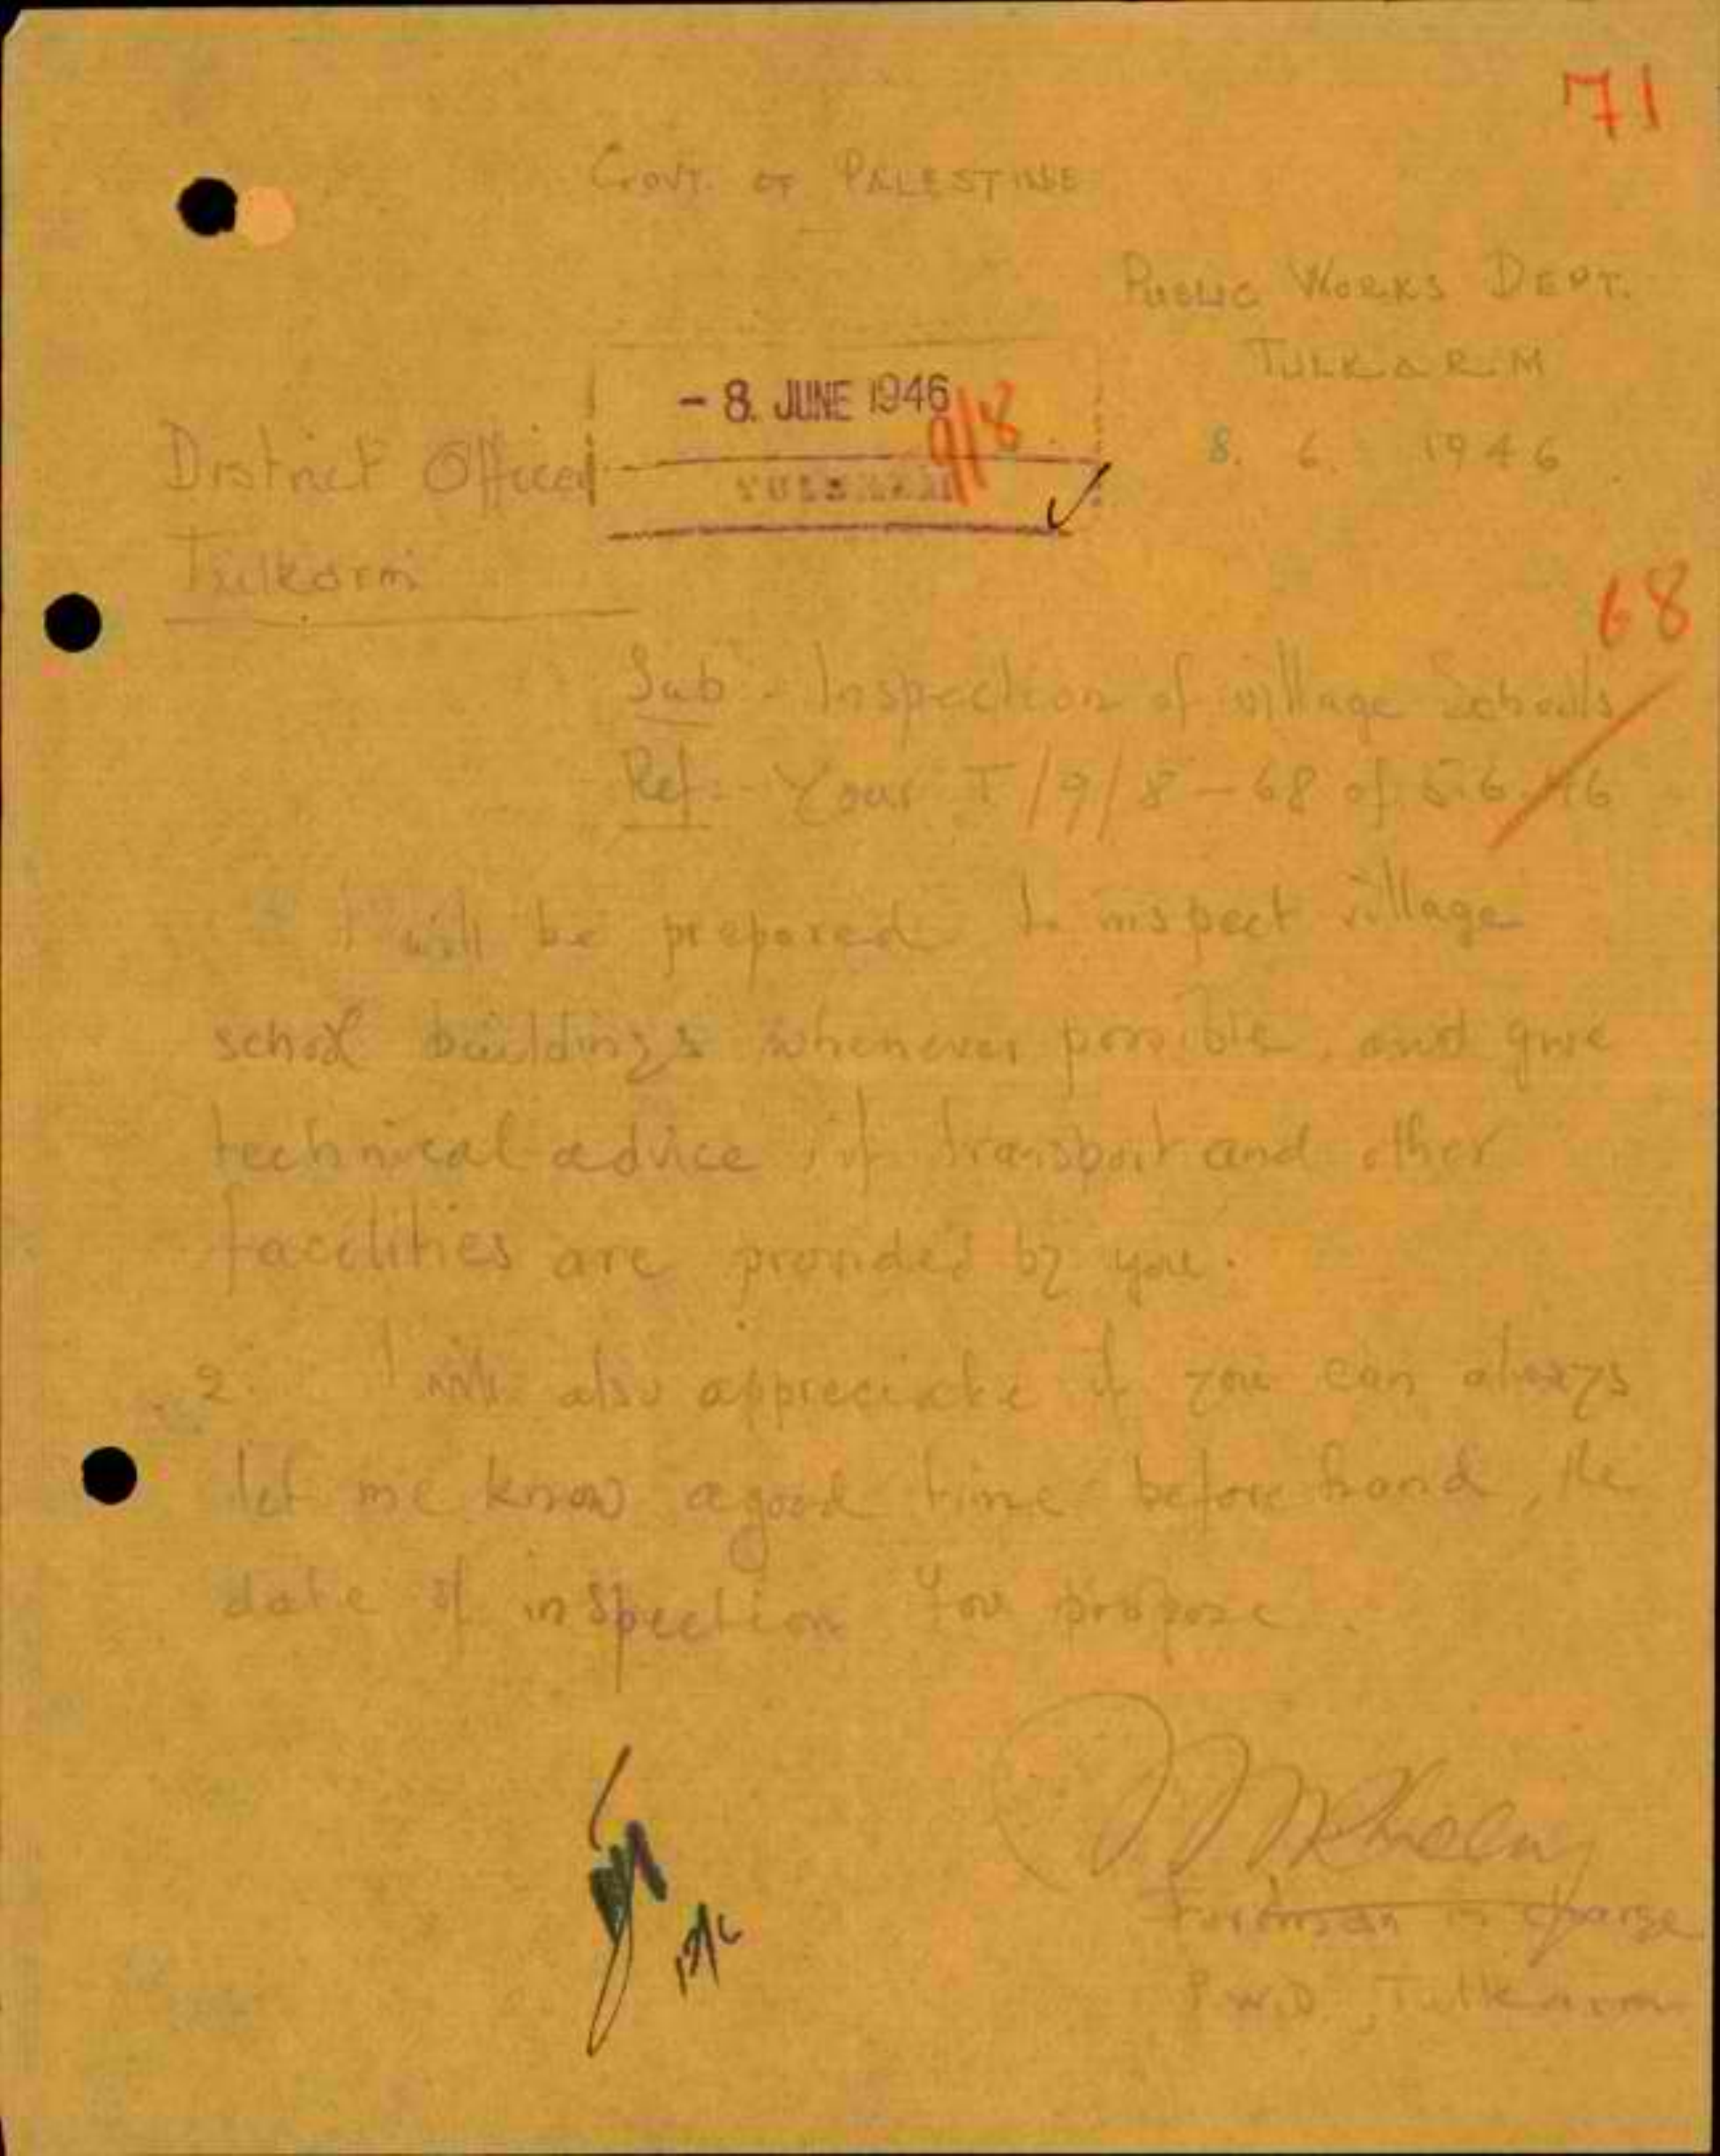 71
GOVT. OF PALESTINE
PUBLIC WORKS DEPT.
TULKARM
- 8. JUNE 1946
9/8
8. 6. 1946
District Officer
TULKARM
Tulkarm
68
Sub - Inspection of village Schools
Ref:- Your T/9/8-68 of 5.6.46
I will be prepared to inspect village
school buildings whenever possible, and give
technical advice, if transport and other
facilities are provided by you.
2. I will also appreciate if you can always
let me know a good time before hand, the
date of inspection you propose.
Foreman in charge
P.W.D., Tulkarm